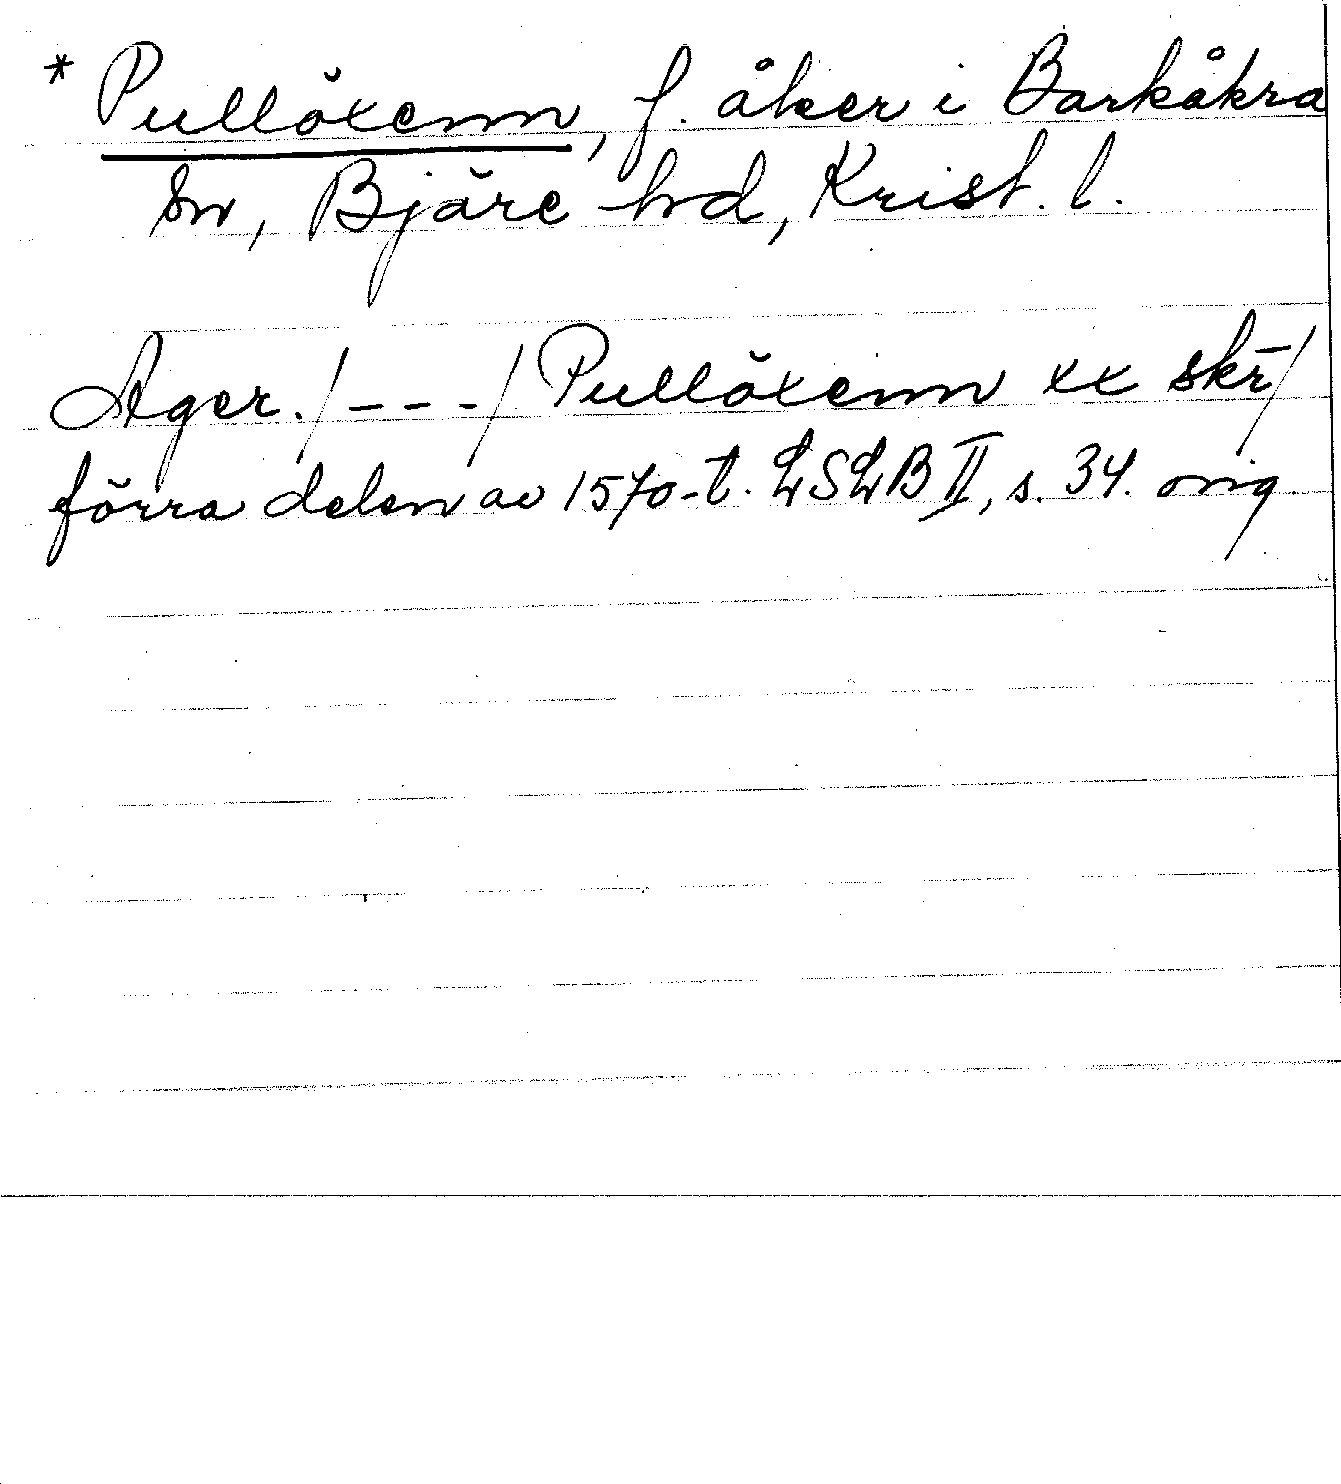 * Pullöxenn, f. åker i Barkåkra
sn, Bjäre hd, Krist. l.
Ager. /---/ Pullöxenn xx skr/
förra delen av 1570-t. LSLB II, s. 34. orig.